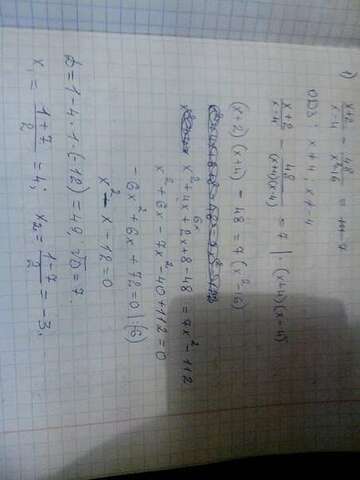 1) x+2/x-4 - 48/x²-16 = 7
ОДЗ: x≠4, x≠-4
x+2/x-4 - 48/(x+4)(x-4) = 7 | ·(x+4)(x-4)
(x+2)(x+4) - 48 = 7(x²-16)
x²+4x+2x+8-48 = 7x²-112
6x
x²+6x-7x²-40+112=0
-6x²+6x+72=0 |:(-6)
x²-x-12=0
D=1-4·1·(-12)=49, √D=7.
x₁= 1+7/2 =4; x₂= 1-7/2 =-3,